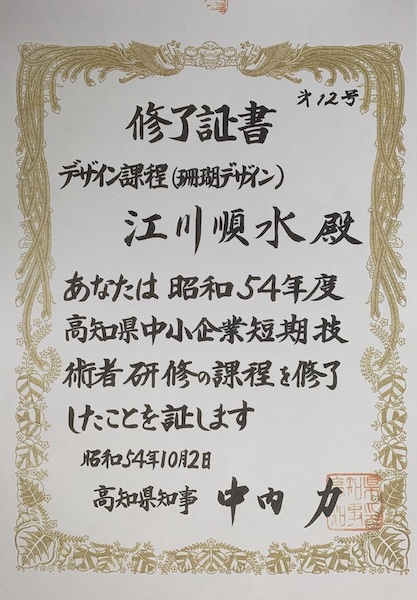 㐧12号
修了証書
デザイン課程(珊瑚デザイン)
江川順水殿
あなたは昭和54年度
高知県中小企業短期技
術者研修の課程を修了
したことを証します
昭和54年10月2日
高知県知事 中内力